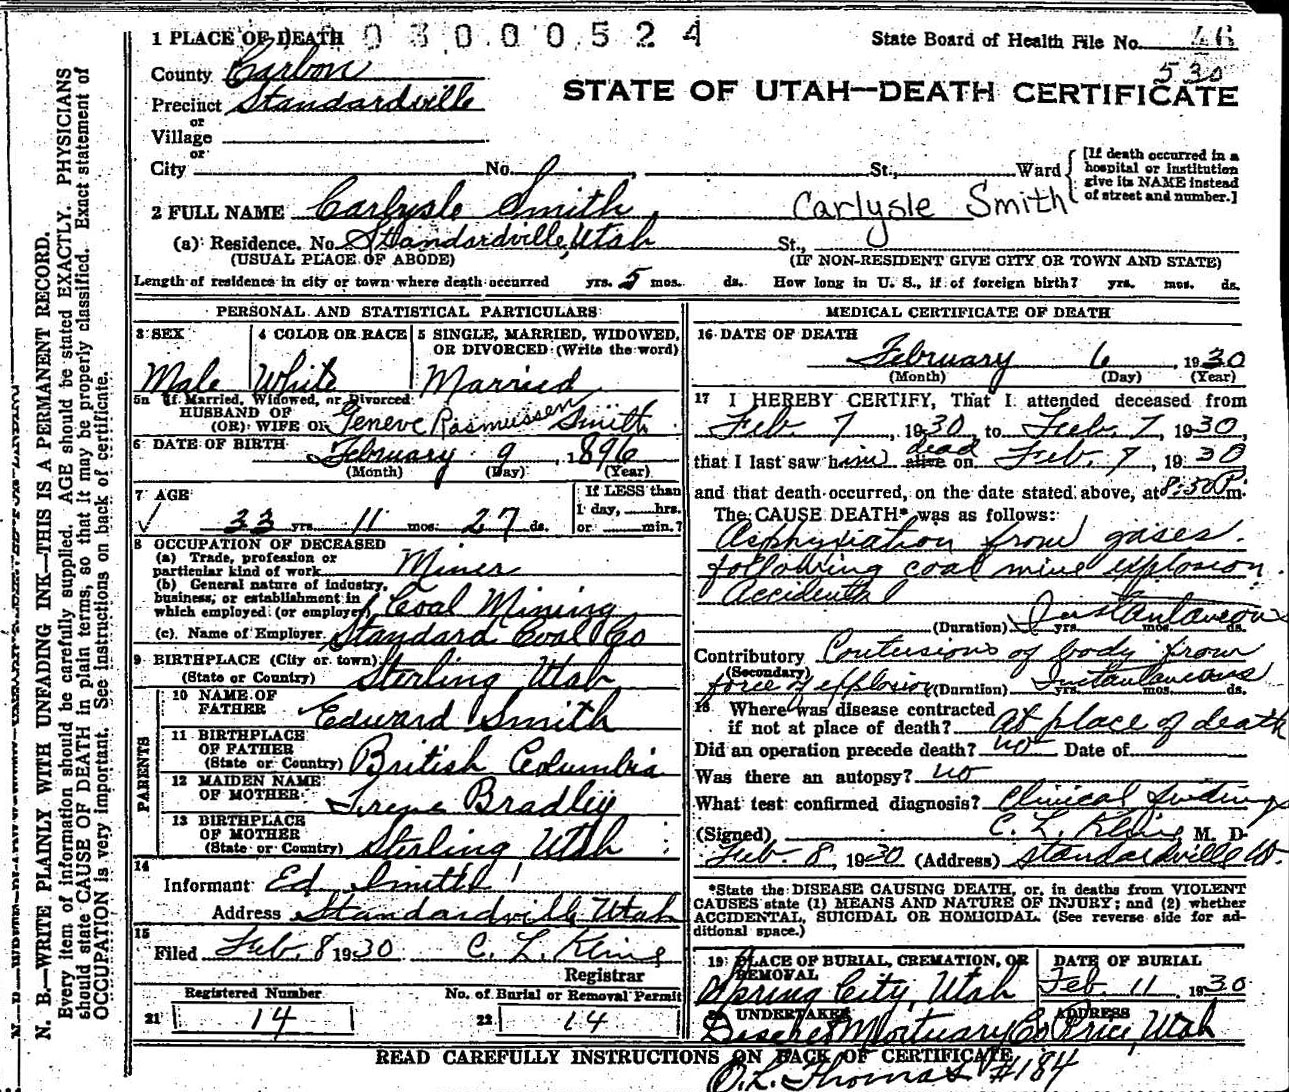 1 PLACE OF DEATH 0 3 0 0 0 5 2 4 State Board of Health File No. 46
530
County Carbon
STATE OF UTAH—DEATH CERTIFICATE
Precinct Standardville
or
Village
or
City No. St., Ward [If death occurred in a hospital or institution give its NAME instead of street and number.]
2 FULL NAME Carlysle Smith Carlysle Smith
(a) Residence. No. Standardville, Utah St.,
(USUAL PLACE OF ABODE) (IF NON-RESIDENT GIVE CITY OR TOWN AND STATE)
Length of residence in city or town where death occurred yrs. 5 mos. ds. How long in U. S., if of foreign birth? yrs. mos. ds.
PERSONAL AND STATISTICAL PARTICULARS
3 SEX 4 COLOR OR RACE 5 SINGLE, MARRIED, WIDOWED,
OR DIVORCED (Write the word)
Male White Married
5a If Married, Widowed, or Divorced
HUSBAND OF
(OR) WIFE OF Geneve Rasmussen Smith
6 DATE OF BIRTH February 9, 1896
(Month) (Day) (Year)
7 AGE If LESS than
1 day, hrs.
33 yrs. 11 mos. 27 ds. or min.?
8 OCCUPATION OF DECEASED
(a) Trade, profession or
particular kind of work Miner
(b) General nature of industry,
business, or establishment in
which employed (or employer) Coal Mining
(c). Name of Employer Standard Coal Co
9 BIRTHPLACE (City or town)
(State or Country) Sterling Utah
PARENTS
10 NAME OF
FATHER Edward Smith
11 BIRTHPLACE
OF FATHER
(State or Country) British Columbia
12 MAIDEN NAME
OF MOTHER Irene Bradley
13 BIRTHPLACE
OF MOTHER
(State or Country) Sterling Utah
14
Informant Ed Smith
Address Standardville Utah
15
Filed Feb. 8 1930 C. L. Kline
Registrar
Registered Number No. of Burial or Removal Permit
21 14 22 14
MEDICAL CERTIFICATE OF DEATH
16 DATE OF DEATH
February 6, 1930
(Month) (Day) (Year)
17 I HEREBY CERTIFY, That I attended deceased from
Feb. 7, 1930, to Feb. 7, 1930,
that I last saw him alive dead on Feb. 7, 1930
and that death occurred, on the date stated above, at 8:30 P. m.
The CAUSE DEATH* was as follows:
Asphyxiation from gases.
following coal mine explosion.
Accidental
(Duration) Instantaneous yrs. mos. ds.
Contributory Contusions of body from
(Secondary)
force of explosion (Duration) Instantaneous yrs. mos. ds.
18 Where was disease contracted
if not at place of death? At place of death
Did an operation precede death? no Date of
Was there an autopsy? no
What test confirmed diagnosis? Clinical findings
(Signed) C. L. Kline, M. D.
Feb. 8, 1930 (Address) Standardville Ut.
*State the DISEASE CAUSING DEATH, or, in deaths from VIOLENT
CAUSES state (1) MEANS AND NATURE OF INJURY; and (2) whether
ACCIDENTAL, SUICIDAL OR HOMICIDAL. (See reverse side for ad-
ditional space.)
19 PLACE OF BURIAL, CREMATION, OR DATE OF BURIAL
REMOVAL
Spring City, Utah Feb. 11 1930
20 UNDERTAKER ADDRESS
Deseret Mortuary Co Price, Utah
READ CAREFULLY INSTRUCTIONS ON BACK OF CERTIFICATE
O. L. Thomas #184
N. B.—WRITE PLAINLY WITH UNFADING INK—THIS IS A PERMANENT RECORD.
Every item of information should be carefully supplied. AGE should be stated EXACTLY. PHYSICIANS
should state CAUSE OF DEATH in plain terms, so that it may be properly classified. Exact statement of
OCCUPATION is very important. See instructions on back of certificate.